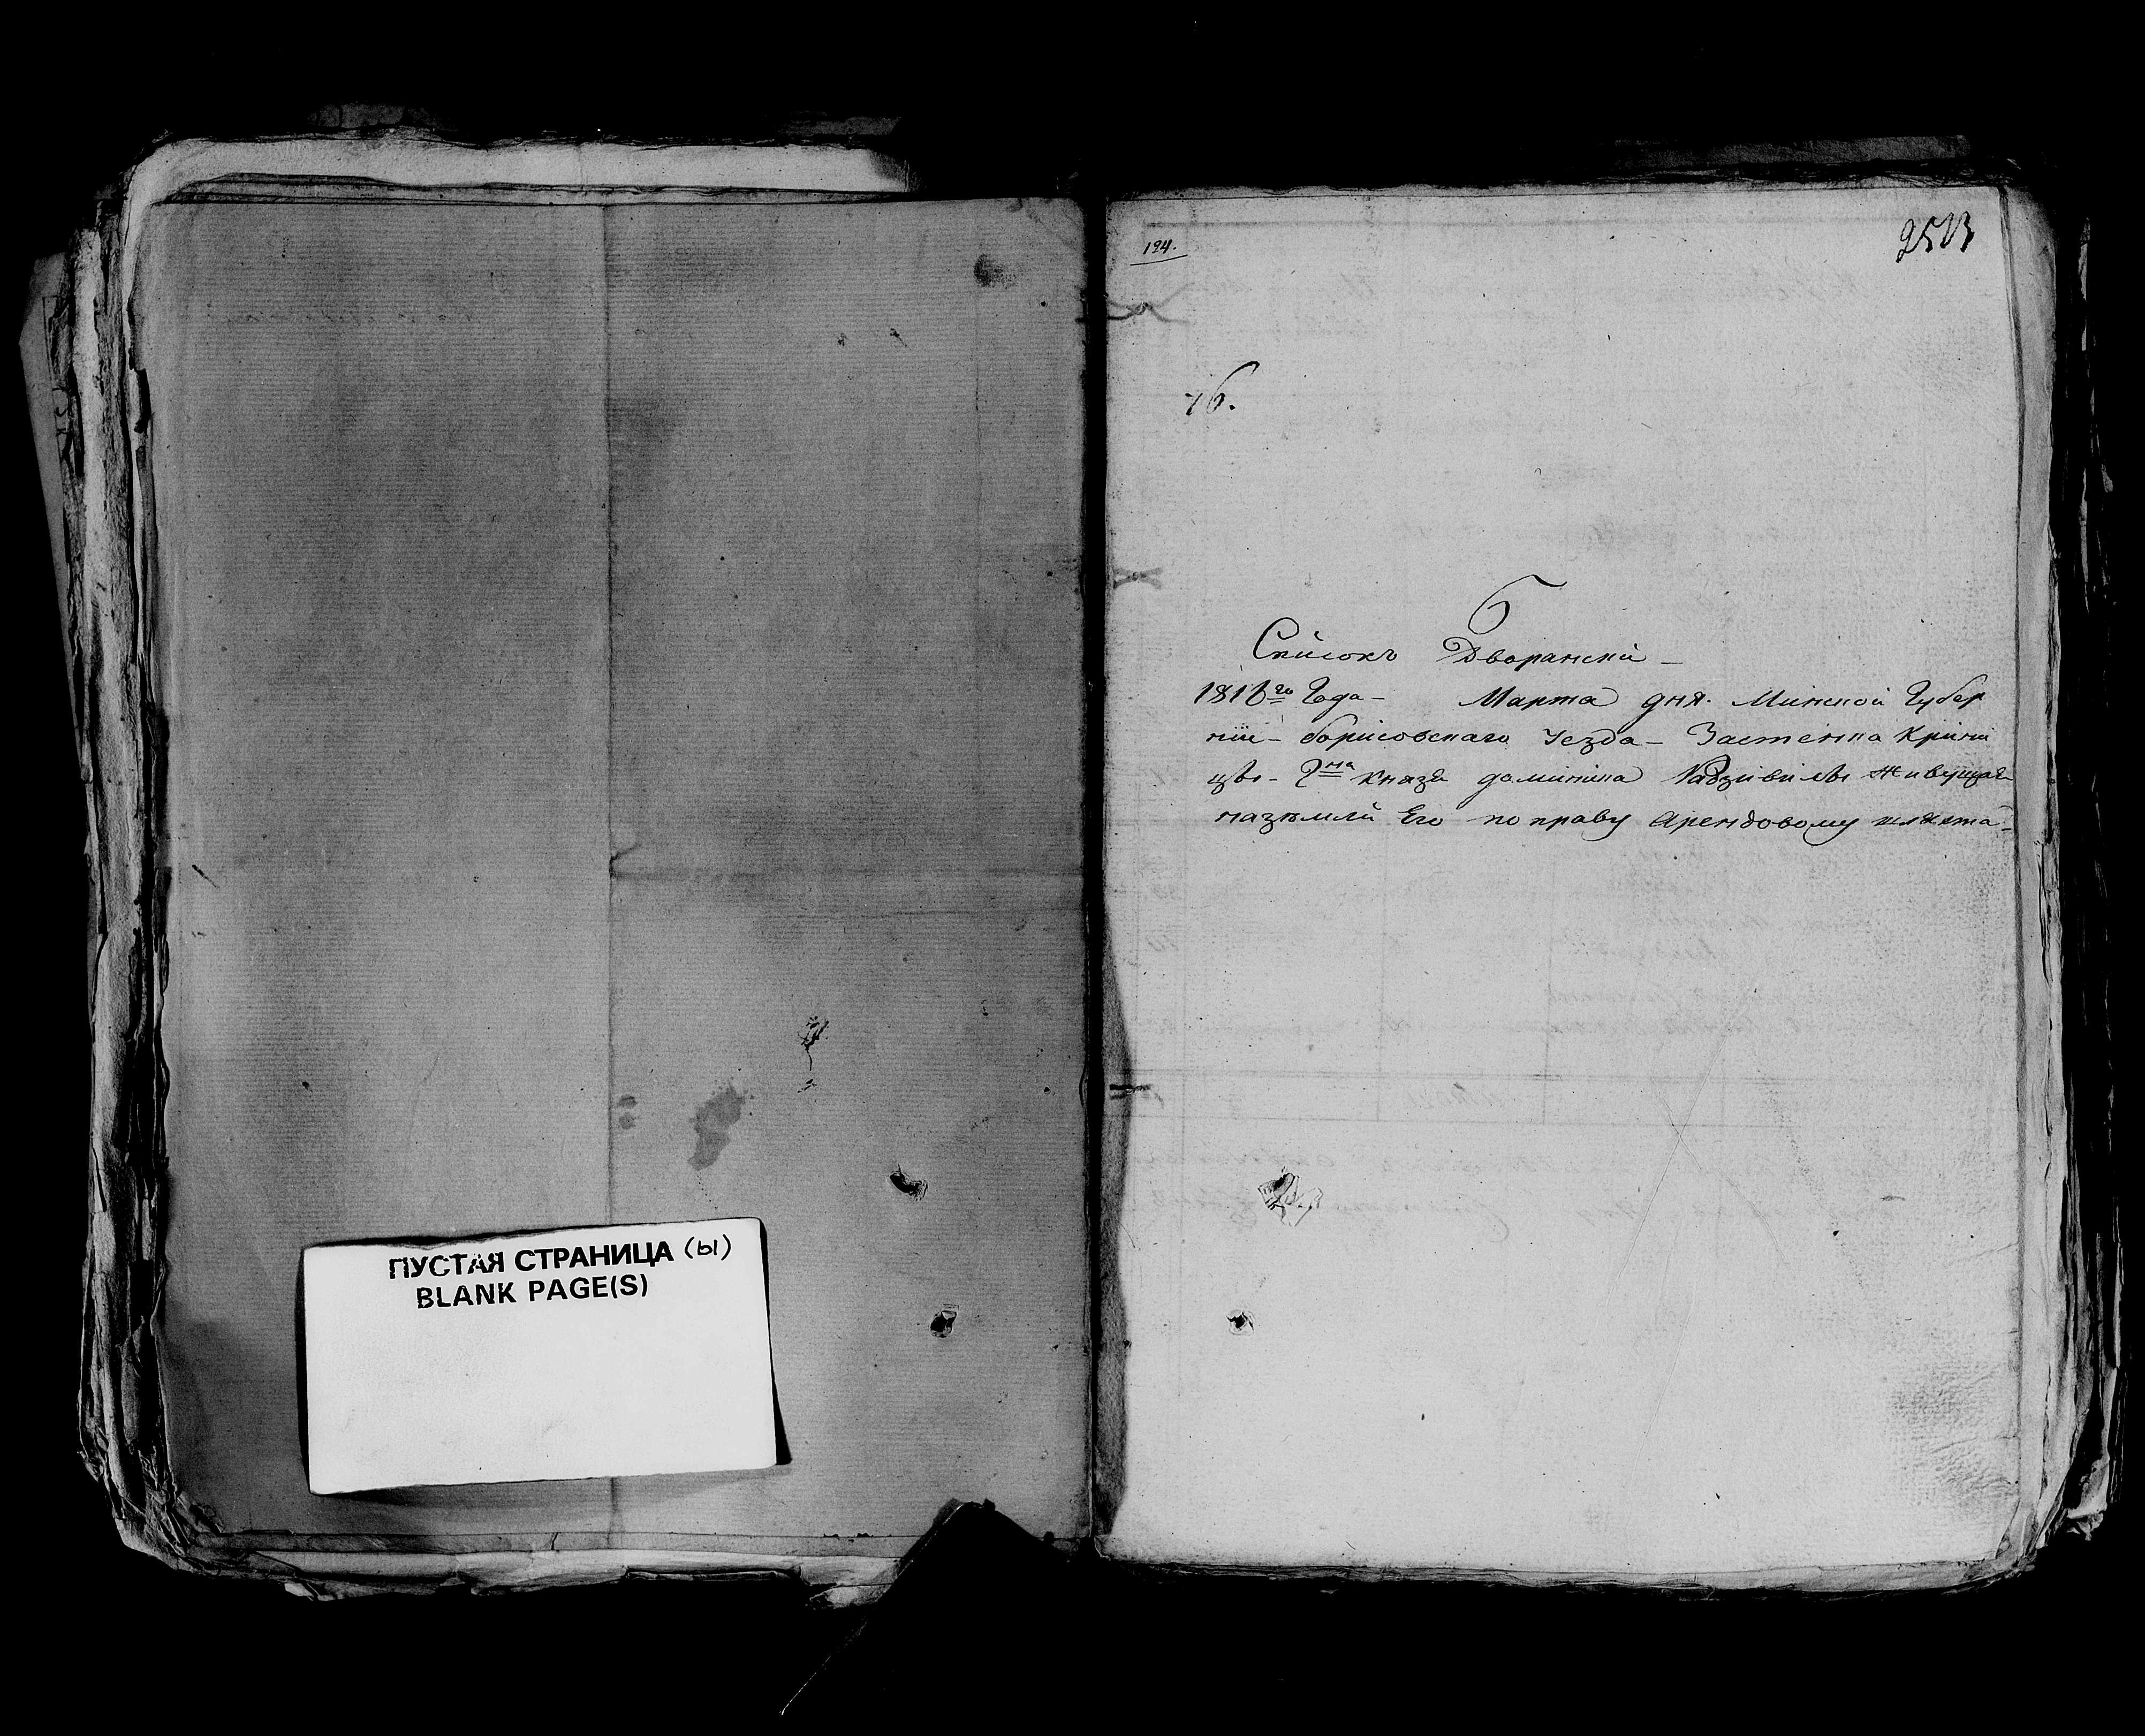 ПУСТАЯ СТРАНИЦА (ы)
BLANK PAGE(S)
194.
46.
Б
Список Дворянски -
1816го Года - Марта дня. Минской Губер
нии - борисовскаго уезда - Застенка Крини
цы - Гна Князя доминика Радзивилы живущая
наземли Его по праву Арендовому шляхта -